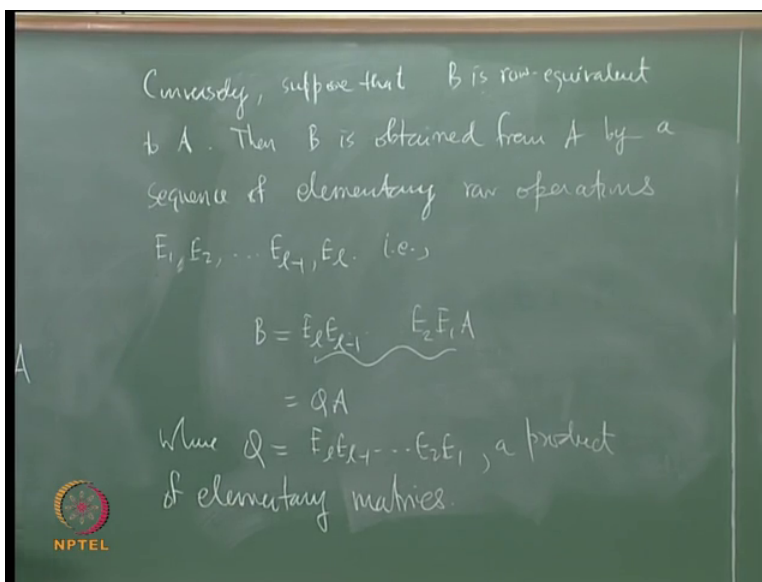 Conversely, suppose that B is row-equivalent
to A. Then B is obtained from A by a
sequence of elementary row operations
E₁, E₂, ... Eₗ₋₁, Eₗ. i.e.,
B = EₗEₗ₋₁ E₂E₁A
A
= QA
where Q = EₗEₗ₋₁...E₂E₁, a product
of elementary matrices.
NPTEL